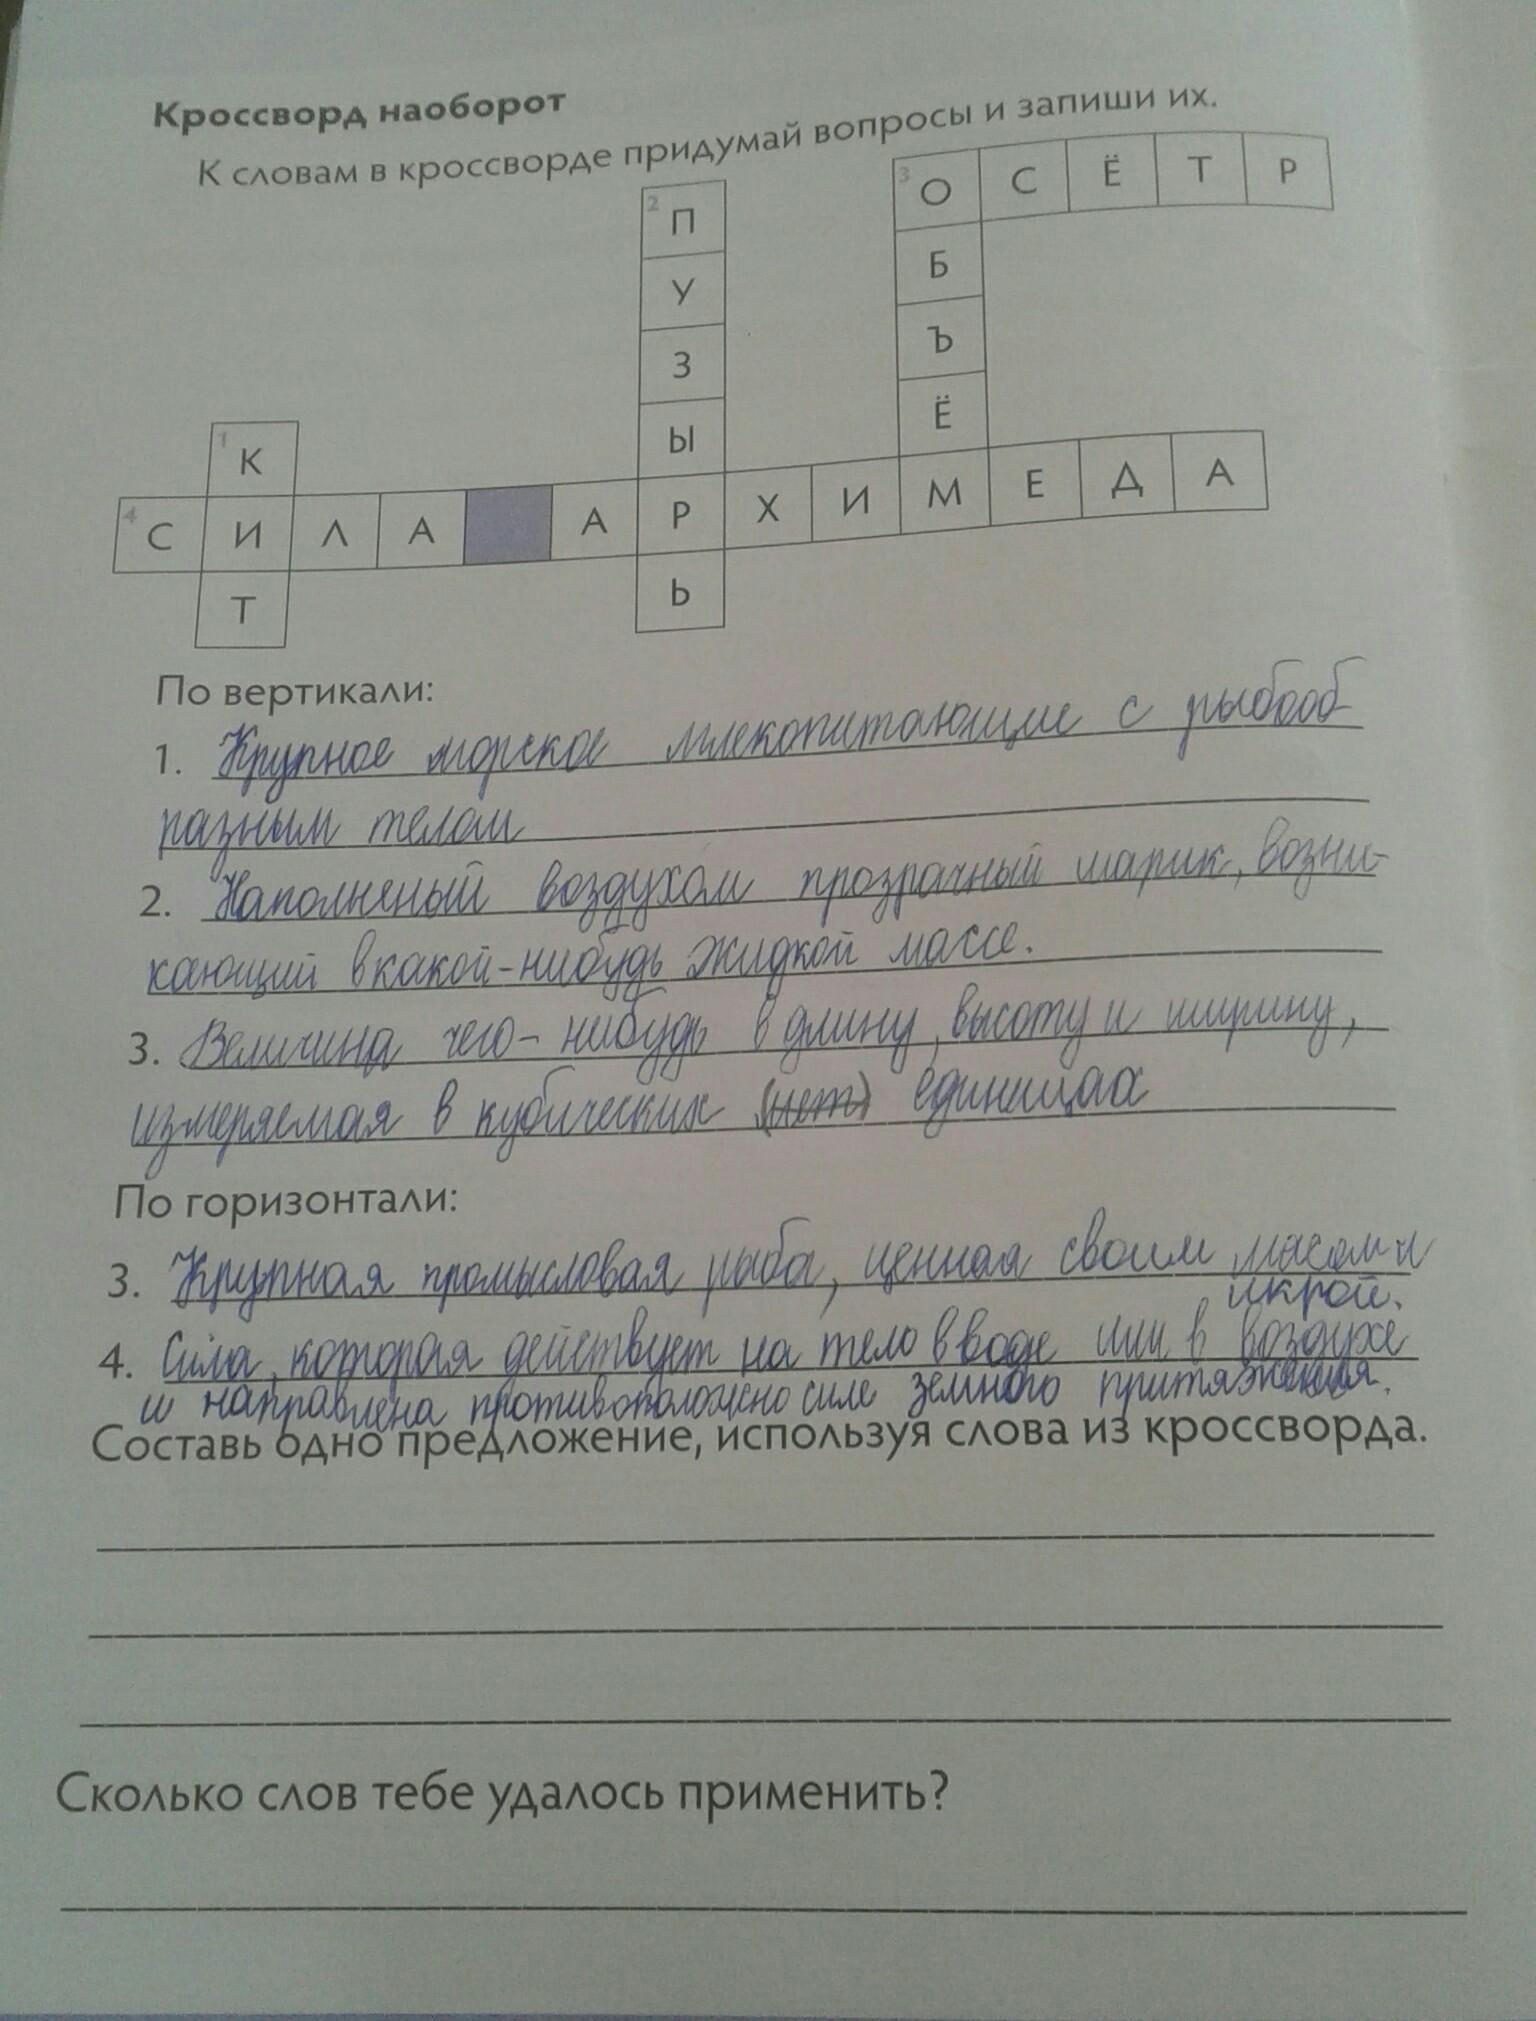 Кроссворд наоборот
К словам в кроссворде придумай вопросы и запиши их.
3 О С Ё Т Р
2 П
У Б
З Ъ
Ы Ё
1 К
4 С И Л А А Р Х И М Е Д А
Т Ь
По вертикали:
1. Крупное морское млекопитающие с рыбооб-
разным телом
2. Наполненый воздухом прозрачный шарик, возни-
кающий в какой-нибудь жидкой массе.
3. Величина чего-нибудь в длину, высоту и ширину,
измеряемая в кубических (нет) единицах
По горизонтали:
3. Крупная промысловая рыба, ценная своим мясом и
икрой.
4. Сила, которая действует на тело в воде или в воздухе
и направлена противоположно силе земного притяжения.
Составь одно предложение, используя слова из кроссворда.
Сколько слов тебе удалось применить?